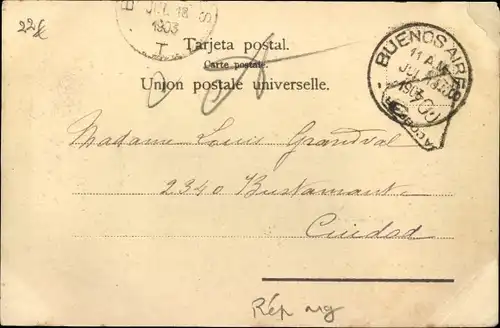 22f
B S
JUL 18
1903
T
Tarjeta postal.
Carte postale.
Union postale universelle.
BUENOS AIRES
11 A.M
JUL
1903
Madame Louis Grandval
2340 Bustamante
Ciudad
Rép arg